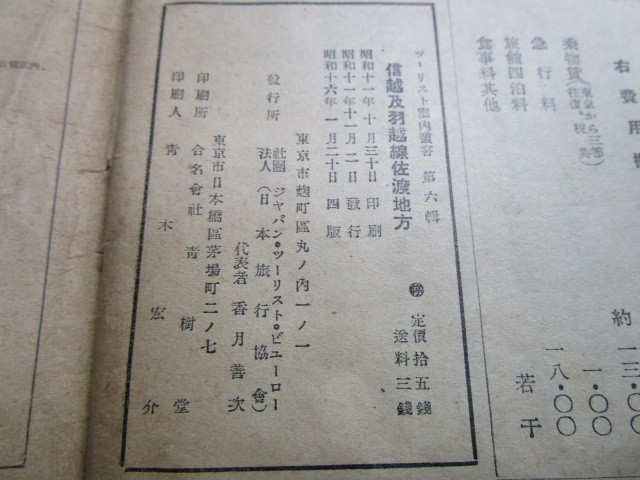 右費用
乘物賃(東京から三等往復、税共)
約一三・〇〇
急行料
一・〇〇
旅館四泊料
一八・〇〇
食事料其他
若干
ツーリスト案內叢書 第六輯
信越及羽越線佐渡地方
定價拾五錢
送料三錢
昭和十一年十月三十日印刷
昭和十一年十一月二日發行
昭和十六年一月二十日四版
東京市麴町區丸ノ內一ノ一
發行所
社團法人 ジャパン・ツーリスト・ビューロー(日本旅行協會)
代表者 香月善次
東京市日本橋區茅場町二ノ七
印刷所 合名會社 青樹堂
印刷人 青木宏介